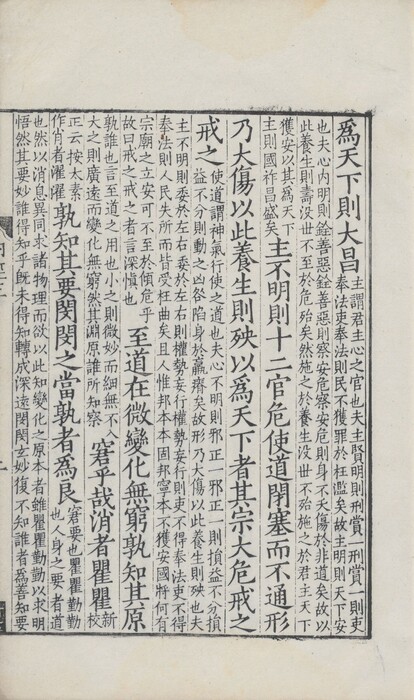 爲天下則大昌主謂君主心之官也夫主賢明則刑賞一刑賞一則吏奉法吏奉法則民不獲罪於枉濫矣故主明則天下安
也夫心内明則銓善惡銓善惡則察安危察安危則身不夭傷於非道矣故以
此養生則壽沒世不至於危殆矣然施之於養生沒世不殆施之於君主天下
獲安以其爲天下主則國祚昌盛矣主不明則十二官危使道閉塞而不通形
乃大傷以此養生則殃以爲天下者其宗大危戒之
戒之使道謂神氣行使之道也夫心不明則邪正一邪正一則損益不分損益不分則動之凶咎陷身於羸瘠矣故形乃大傷以此養生則殃也夫
主不明則委於左右委於左右則權勢妄行權勢妄行則吏不得奉法吏不得
奉法則人民失所而皆受枉曲矣且人惟邦本本固邦寧本不獲安國將何有
宗廟之立安可不至於傾危乎故曰戒之戒之者言深慎也至道在微變化無窮孰知其原
孰誰也言至道之用也小之則微妙而細無不入大之則廣遠而變化無窮然其淵原誰所知察窘乎哉消者瞿瞿新校
正云按太素作肖者濯濯孰知其要閔閔之當孰者爲良窘要也瞿瞿勤勤也人身之要者道
也然以消息異同求諸物理而欲以此知變化之原本者雖瞿瞿勤勤以求明
悟然其要妙誰得知乎既未得知轉成深遠閔閔玄妙復不知誰者爲善知要